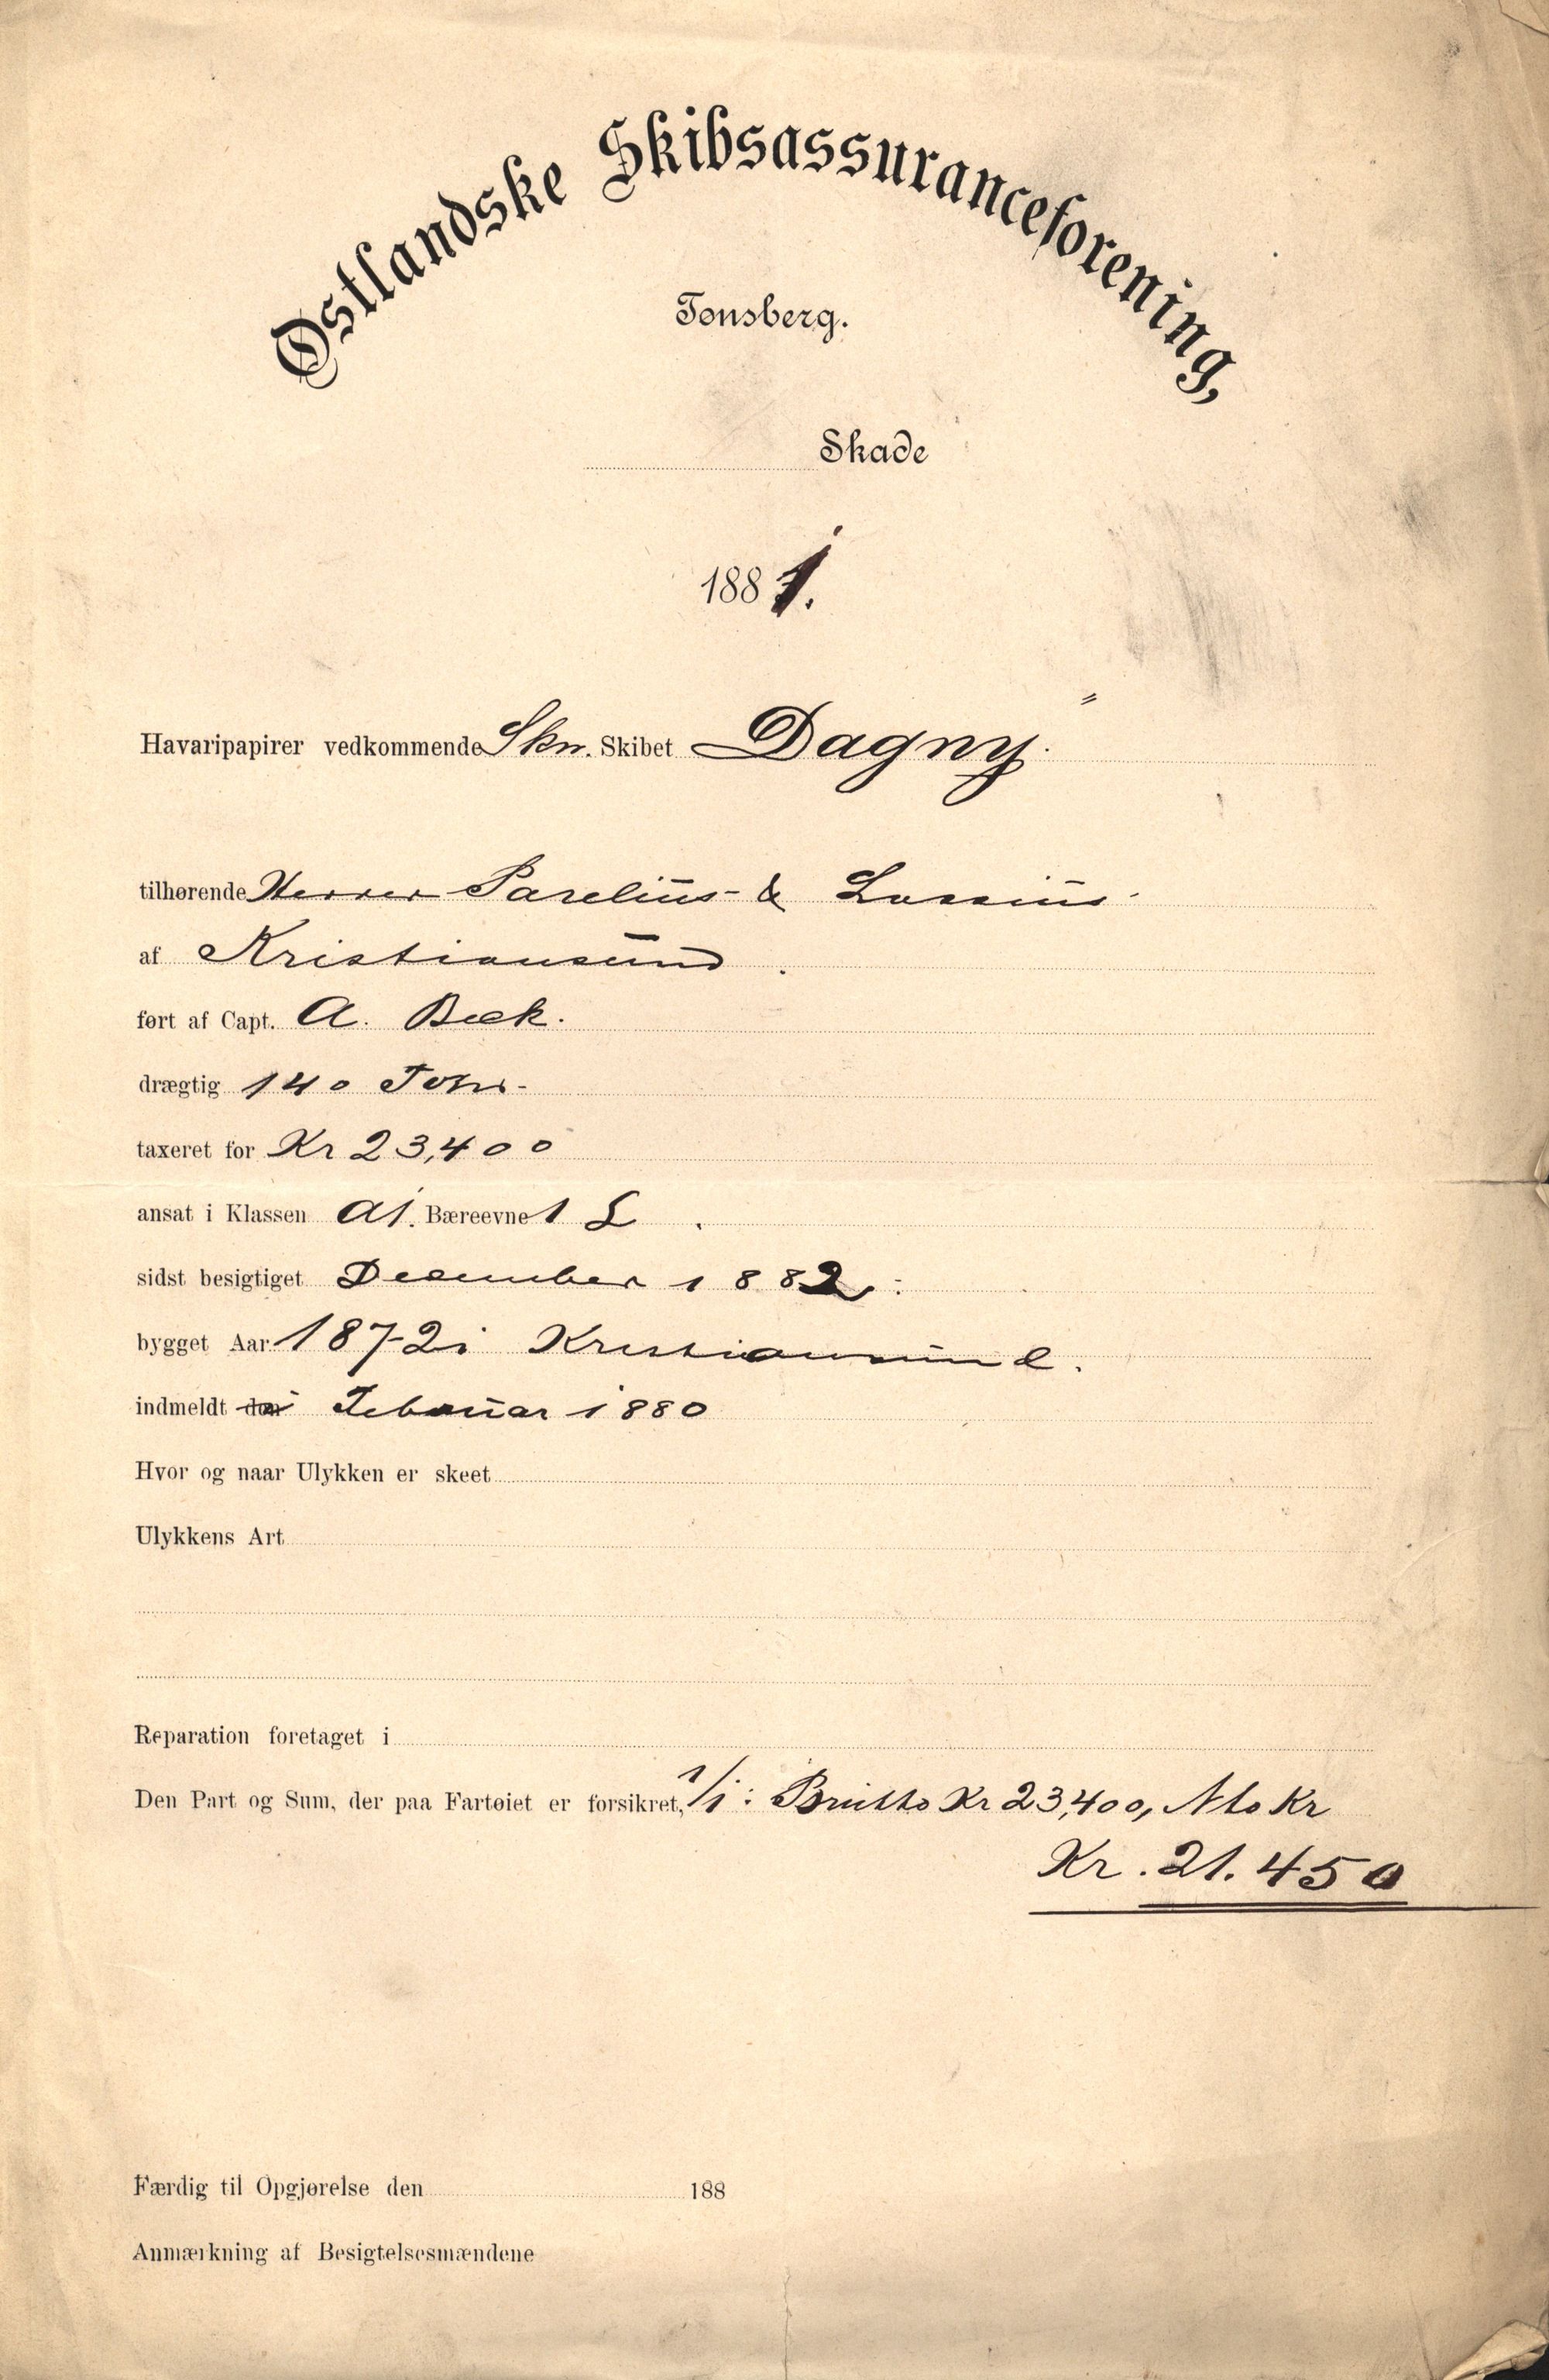 Østlandske Skibsassuranceforening,
Tønsberg.
Skade
1881.
Havaripapirer vedkommende Skn. Skibet Dagny"
tilhørende Herrer Parelius & Lossius
af Kristiansund.
ført af Capt. A. Beck.
drægtig 140 Tons
taxeret for Kr 23,400
ansat i Klassen A1. Bæreevne 1 L.
sidst besigtiget December 1882.
bygget Aar 1872 i Kristiansund.
indmeldt den i Februar 1880
Hvor og naar Ulykken er skeet
Ulykkens Art
Reparation foretaget i
Den Part og Sum, der paa Fartøiet er forsikret, 1/1: Brutto Kr 23,400, Nto Kr
Kr. 21.450
Færdig til Opgjørelse den 188
Anmærkning af Besigtelsesmændene